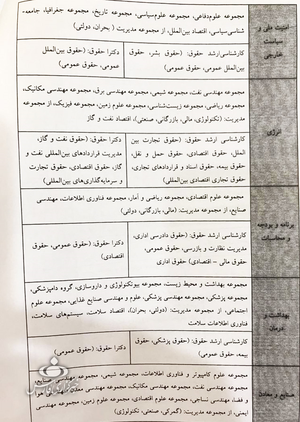 امنیت ملی و
سیاست
خارجی
مجموعه علوم‌دفاعی، مجموعه علوم‌سیاسی، مجموعه تاریخ، مجموعه جغرافیا، جامعه-
شناسی‌سیاسی، اقتصاد بین‌الملل، از مجموعه مدیریت ( بحران، دولتی)
کارشناسی‌ارشد حقوق: (حقوق بشر، حقوق
بین‌الملل عمومی، حقوق عمومی)
دکترا حقوق: (حقوق بین‌الملل
عمومی، حقوق عمومی)
انرژی
مجموعه مهندسی نفت، مجموعه شیمی، مجموعه مهندسی برق، مجموعه مهندسی مکانیک،
مجموعه ریاضی، مجموعه زیست‌شناسی، مجموعه علوم زمین، مجموعه فیزیک، از مجموعه
مدیریت: (تکنولوژی، مالی، بازرگانی، صنعتی)، اقتصاد نفت و گاز
کارشناسی ارشد حقوق: (حقوق تجارت بین
الملل، حقوق اقتصادی، حقوق حمل و نقل،
حقوق بیمه، حقوق اسناد و قراردادهای تجاری،
حقوق تجاری اقتصادی بین‌المللی)
دکترا حقوق: (حقوق نفت و گاز،
مدیریت قراردادهای بین‌المللی نفت و
گاز، حقوق اقتصادی، حقوق تجارت
و سرمایه‌گذاری‌های بین‌المللی)
برنامه و بودجه
و محاسبات
مجموعه علوم اقتصادی، مجموعه ریاضی و آمار، مجموعه فناوری اطلاعات، مهندسی
صنایع، از مجموعه مدیریت: (مالی، بازرگانی، دولتی)
کارشناسی ارشد حقوق: (حقوق دادرسی اداری،
مدیریت نظارت و بازرسی، حقوق عمومی،
حقوق مالی – اقتصادی) حقوق اداری
دکترا حقوق: (حقوق عمومی، حقوق
اقتصادی)
بهداشت و
درمان
مجموعه بهداشت و محیط زیست، مجموعه بیوتکنولوژی و داروسازی، گروه دامپزشکی،
مجموعه پزشکی، مجموعه مهندسی پزشکی، علوم و مهندسی صنایع غذایی، مجموعه علوم
اجتماعی، از مجموعه مدیریت: (دولتی، بحران)، اقتصاد سلامت، سیستم‌های سلامت،
فناوری اطلاعات سلامت
کارشناسی ارشد حقوق: (حقوق پزشکی، حقوق
بیمه، حقوق عمومی)
دکترا حقوق: (حقوق عمومی)
صنایع و معادن
مجموعه علوم کامپیوتر و فناوری اطلاعات، مجموعه شیمی، مجموعه مهندسی صنایع،
مجموعه مهندسی نفت، مجموعه مهندسی مکانیک، مجموعه مهندسی معدن، هوا
و فضا، مهندسی نساجی، مجموعه علوم اقتصادی، مجموعه علوم زمین، مجموعه مهندسی
ایمنی، از مجموعه مدیریت: (گمرکی، صنعتی، تکنولوژی)